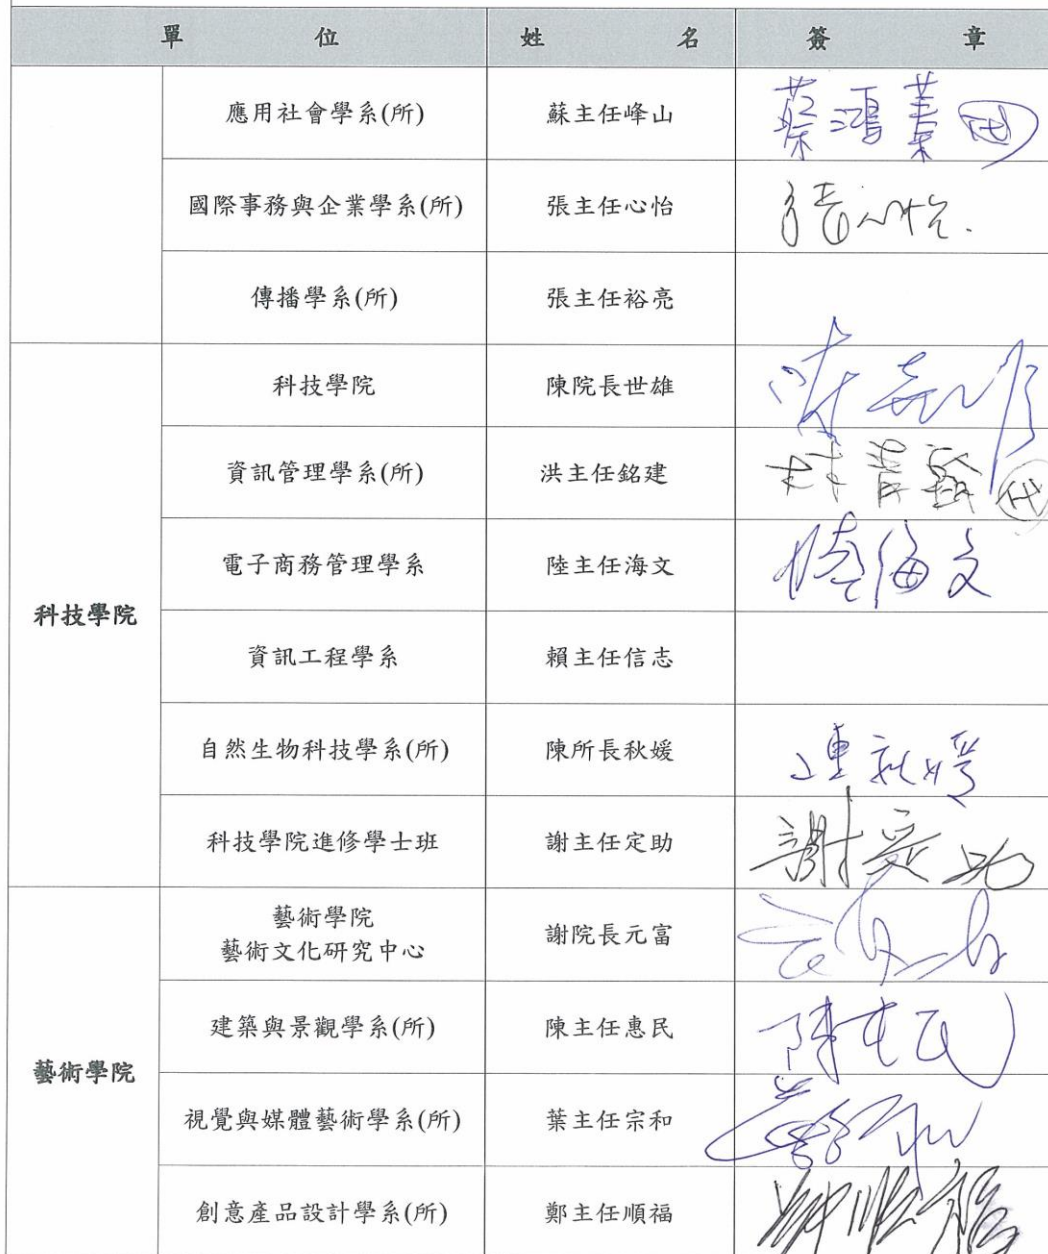 單位 姓名 簽章
應用社會學系(所) 蘇主任峰山 蔡鴻業 代
國際事務與企業學系(所) 張主任心怡 張心怡.
傳播學系(所) 張主任裕亮
科技學院
科技學院 陳院長世雄
資訊管理學系(所) 洪主任銘建 代
電子商務管理學系 陸主任海文 陸海文
資訊工程學系 賴主任信志
自然生物科技學系(所) 陳所長秋媛
科技學院進修學士班 謝主任定助 謝定助
藝術學院
藝術學院
藝術文化研究中心 謝院長元富
建築與景觀學系(所) 陳主任惠民 陳惠民
視覺與媒體藝術學系(所) 葉主任宗和
創意產品設計學系(所) 鄭主任順福